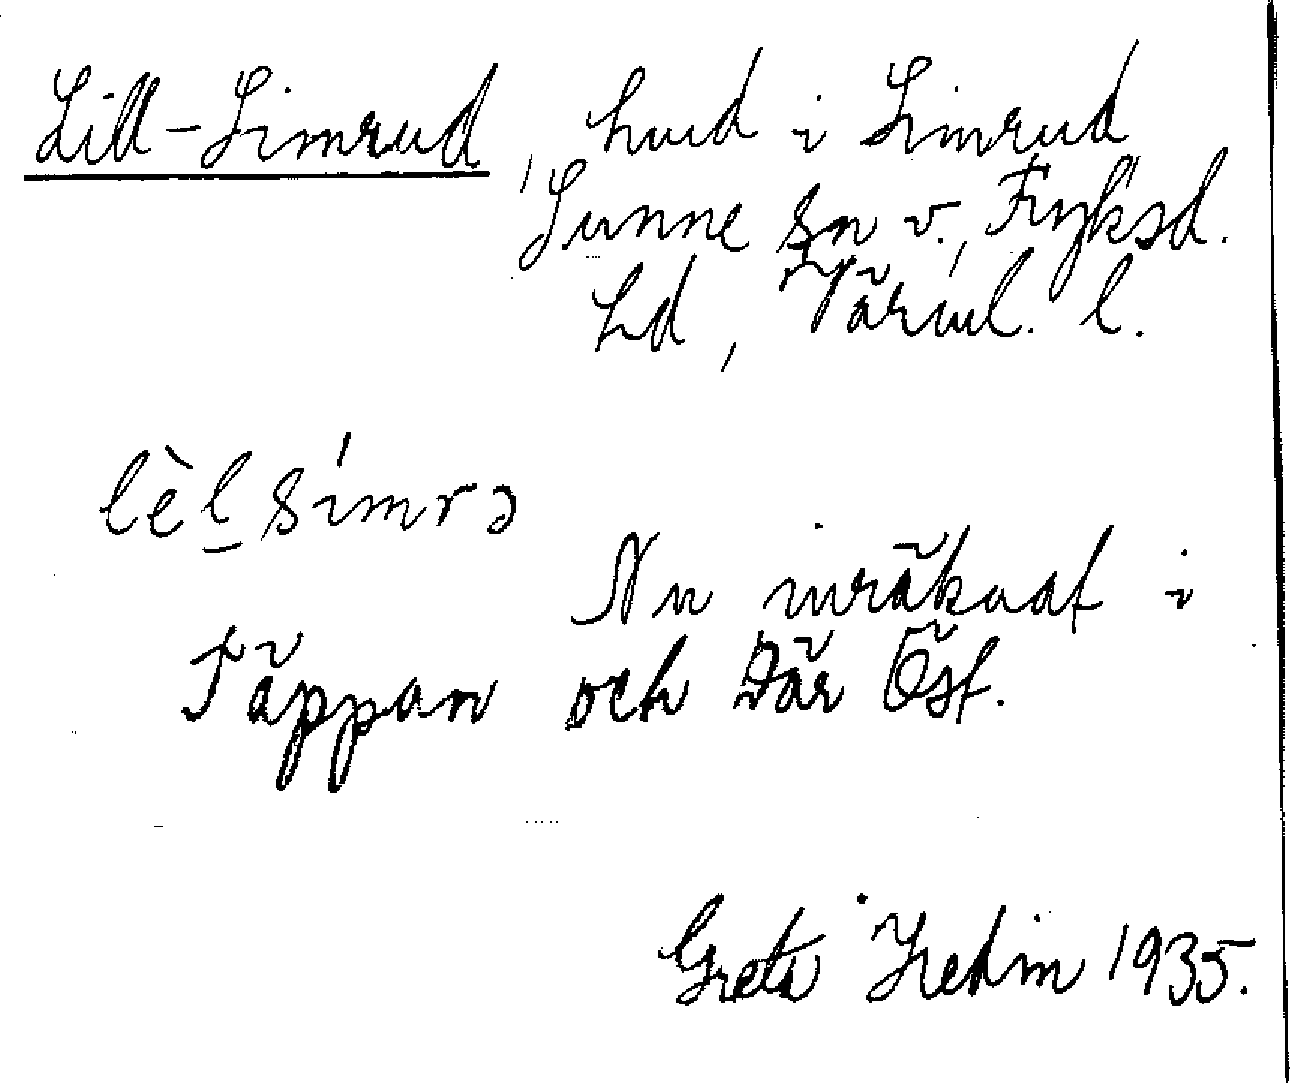 Lill-Simrud, hmd i Simrud
Sunne sn v., Fryksd.
hd, Värml. l.
lèl símrə
Nu inräknat i
Täppan och Där Öst.
Greta Hedin 1935.